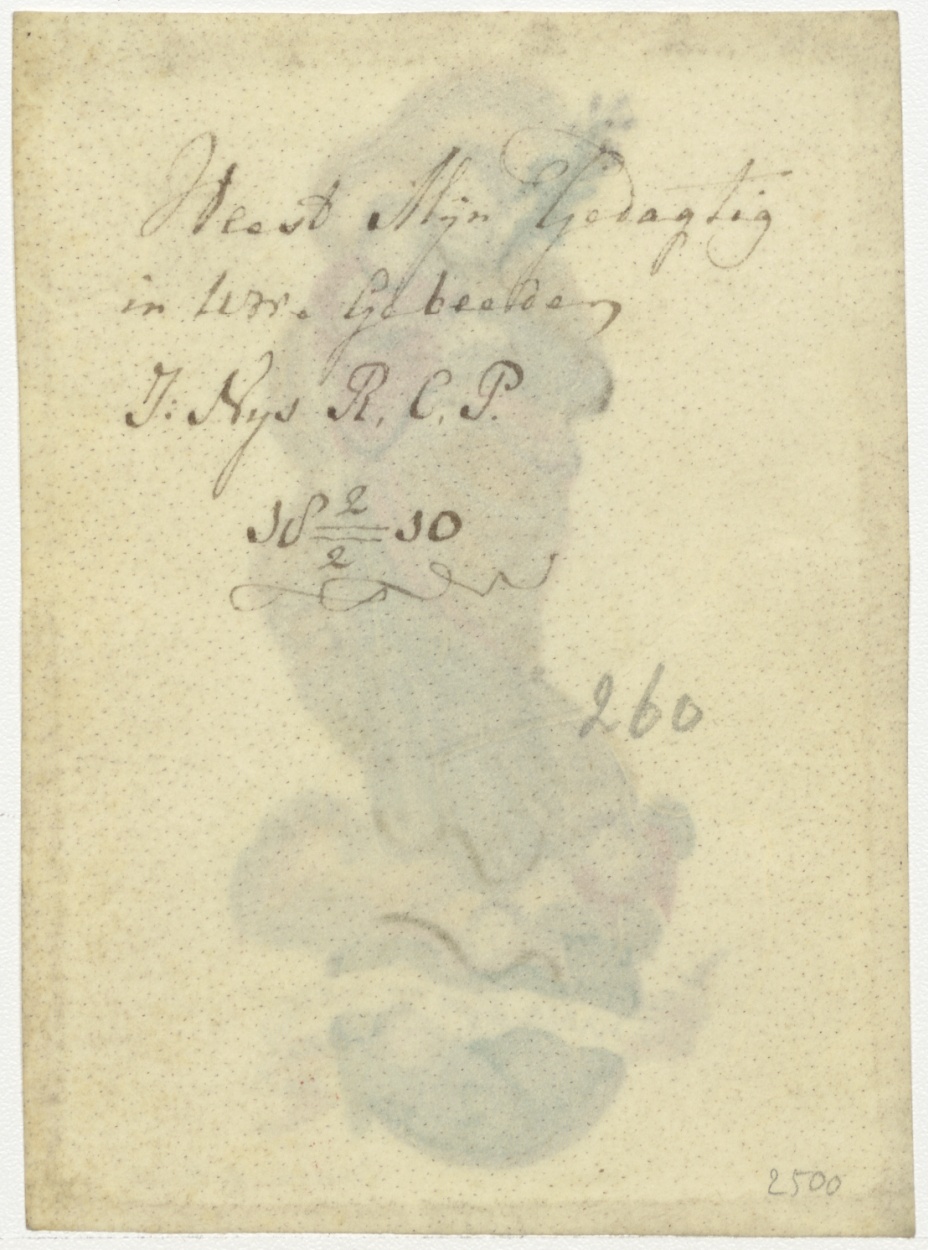 Weest Mijn Gedagtig
in Uwe Gebeeden
J: Nys R. C. P.
18 2/2 10
260
2500